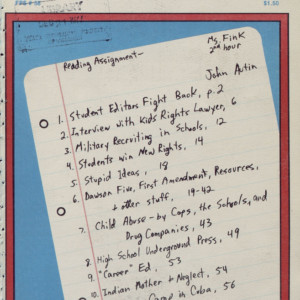 $1.50
Reading Assignment—
Ms. Fink
2nd hour
John Autin
1. Student Editors Fight Back, p.2
2. Interview with Kids Rights Lawyer, 6
3. Military Recruiting in Schools, 12
4. Students win New Rights, 14
5. Stupid Ideas, 18
6. Dawson Five, First Amendment, Resources,
+ other stuff, 19-42
7. Child Abuse - by Cops, the Schools, and
Drug Companies, 43
8. High School Underground Press, 49
9. "Career" Ed, 53
10. Indian Mother + Neglect, 54
in Cuba, 56